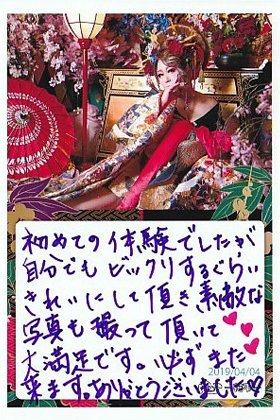 初めての体験でしたが
自分でも ビックリするぐらい
きれいにして頂き素敵な
写真も撮って頂いて
大満足です。必ずまた
2019/04/04
来ます。ありがとうございました